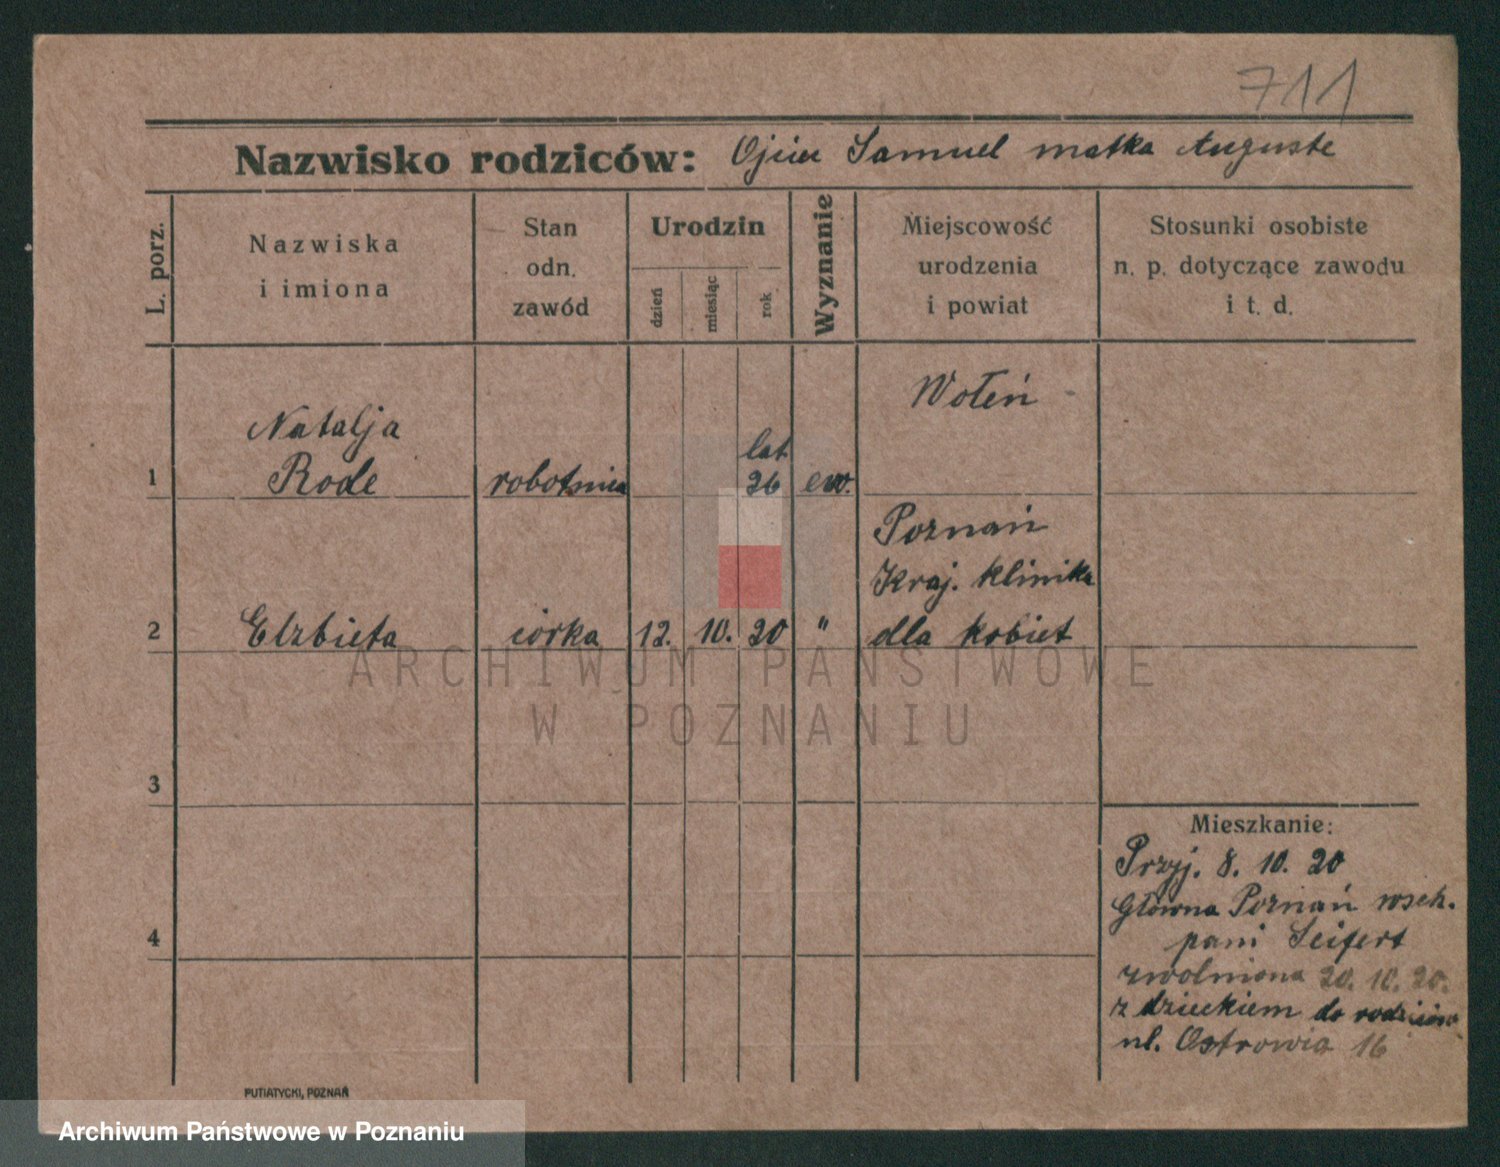 711
Nazwisko rodziców: Ojciec Samuel matka Auguste
L. porz.
Nazwiska
i imiona
Stan
odn.
zawód
Urodzin
dzień
miesiąc
rok
Wyznanie
Miejscowość
urodzenia
i powiat
Stosunki osobiste
n. p. dotyczące zawodu
i t. d.
1
Natalja
Rode
robotnica
lat
26
ew.
Wołeń
2
Elzbieta
córka
12. 10. 20
"
Poznań
Kraj. klinika
dla kobiet
3
4
Mieszkanie:
Przyj. 8. 10. 20
Główna Poznań wsch.
pani Seifert
zwolniona 20. 10. 20.
z dzieckiem do rodziców
ul. Ostrowia 16
PUTIATYCKI, POZNAŃ
ARCHIWUM PAŃSTWOWE
W POZNANIU
Archiwum Państwowe w Poznaniu